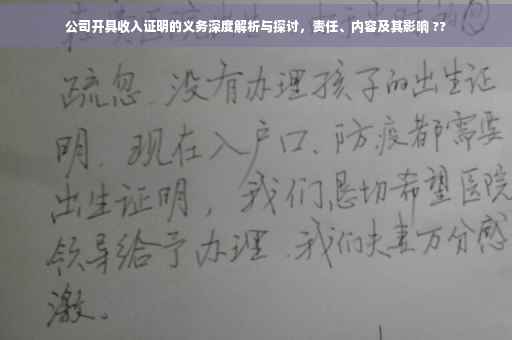 公司开具收入证明的义务深度解析与探讨，责任、内容及其影响 ??
疏忽、没有办理孩子的出生证
明、现在入户口、防疫都需要
出生证明，我们恳切希望医院
领导给予办理、我们夫妻万分感
激。